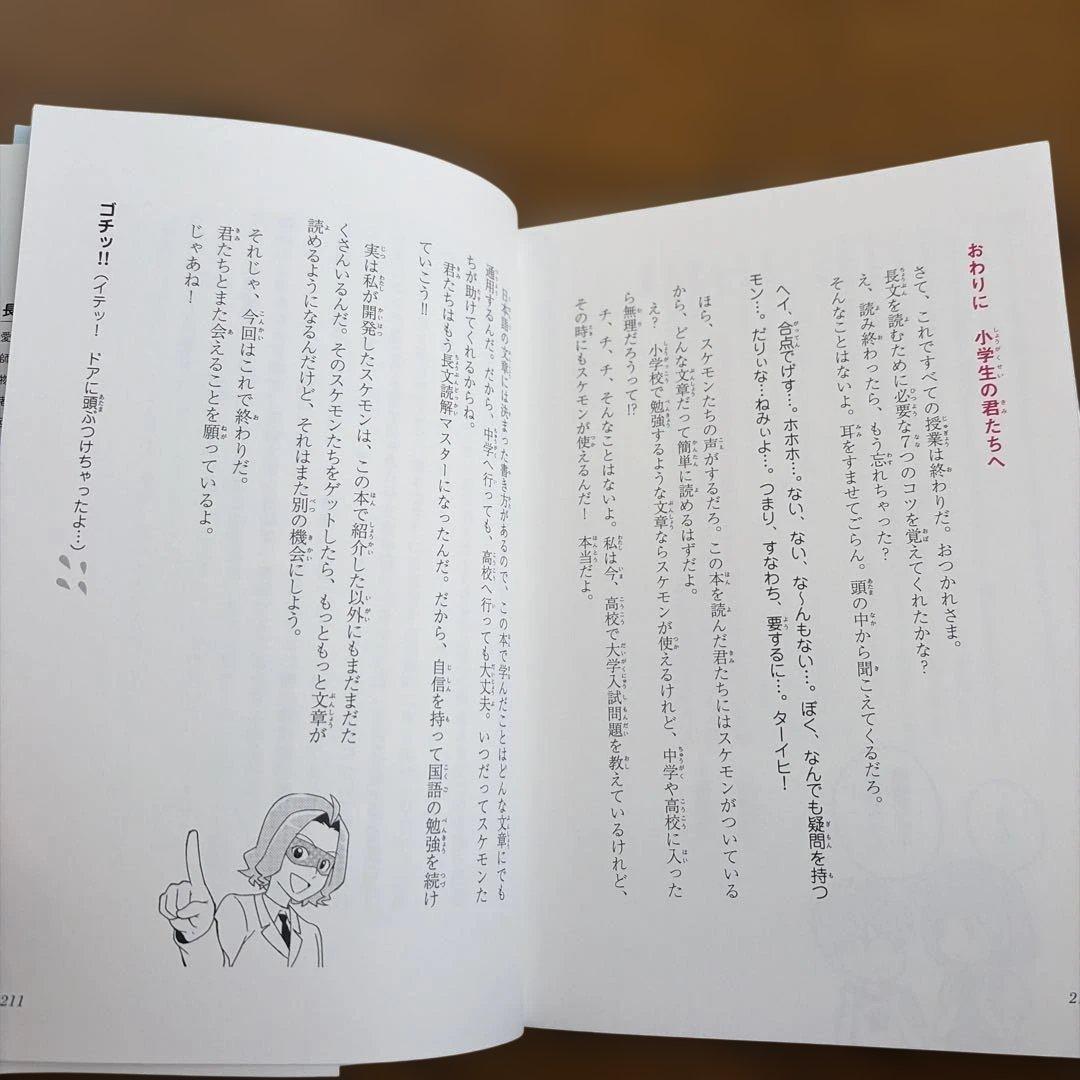 おわりに 小学生の君たちへ
さて、これですべての授業は終わりだ。おつかれさま。
長文を読むために必要な7つのコツを覚えてくれたかな?
え、読み終わったら、もう忘れちゃった?
そんなことはないよ。耳をすませてごらん。頭の中から聞こえてくるだろ。
ヘイ、合点でげす…。ホホホ…。ない、ない、な〜んもない…。ぼく、なんでも疑問を持つ
モン…。だりぃな…ねみぃよ…。つまり、すなわち、要するに…。ターイヒ!
ほら、スケモンたちの声がするだろ。この本を読んだ君たちにはスケモンがついている
から、どんな文章だって簡単に読めるはずだよ。
え? 小学校で勉強するような文章ならスケモンが使えるけれど、中学や高校に入った
ら無理だろうって!?
チ、チ、チ、そんなことはないよ。私は今、高校で大学入試問題を教えているけれど、
その時にもスケモンが使えるんだ! 本当だよ。
日本語の文章には決まった書き方があるので、この本で学んだことはどんな文章にでも
通用するんだ。だから、中学へ行っても、高校へ行っても大丈夫。いつだってスケモンた
ちが助けてくれるからね。
君たちはもう長文読解マスターになったんだ。だから、自信を持って国語の勉強を続け
ていこう!!
実は私が開発したスケモンは、この本で紹介した以外にもまだまだた
くさんいるんだ。そのスケモンたちをゲットしたら、もっともっと文章が
読めるようになるんだけど、それはまた別の機会にしよう。
それじゃ、今回はこれで終わりだ。
君たちとまた会えることを願っているよ。
じゃあね!
ゴチッ!!(イテッ! ドアに頭ぶつけちゃったよ…)
211